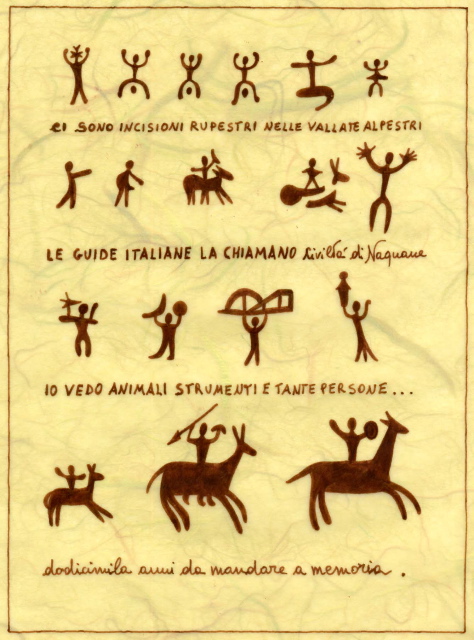 CI SONO INCISIONI RUPESTRI NELLE VALLATE ALPESTRI
LE GUIDE ITALIANE LA CHIAMANO Civiltà di Naquane
IO VEDO ANIMALI STRUMENTI E TANTE PERSONE...
dodicimila anni da mandare a memoria.